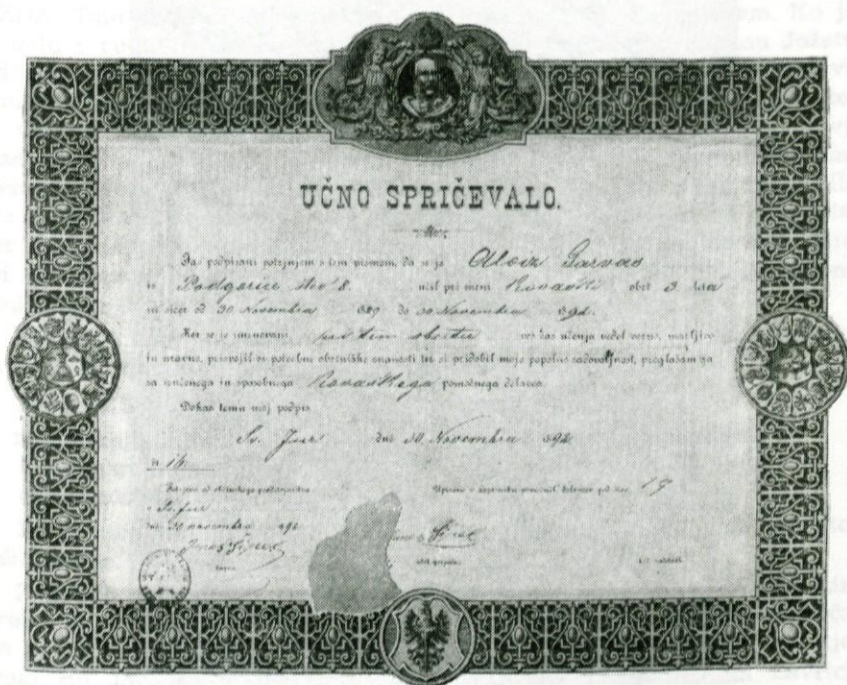 UČNO SPRIČEVALO.
Jaz podpisani potrjujem s tem pismom, da se je Alojz
iz Podgorice štev 8. učil pri meni Kovaštii obrt 3 leta
in sicer od 30 Novembra 889 do 30 Novembra 892.
Ker se je imenovani pri tem obrtu ves čas učenja vedel verno, marljivo
in nravno, prisvojil si potrebne obrtniške znanosti ter si pridobil mojo popolno zadovoljnost, proglašam ga
za izučenega in sposobnega Kovaškega pomožnega delavca.
Dokaz temu moj podpis
Sv. Jur dne 30. Novembra 892
št. 16.
Vpisano v zapisniku pomožnih delavcev pod štev. 19
Sv. Jur
dne 30 novembra 892